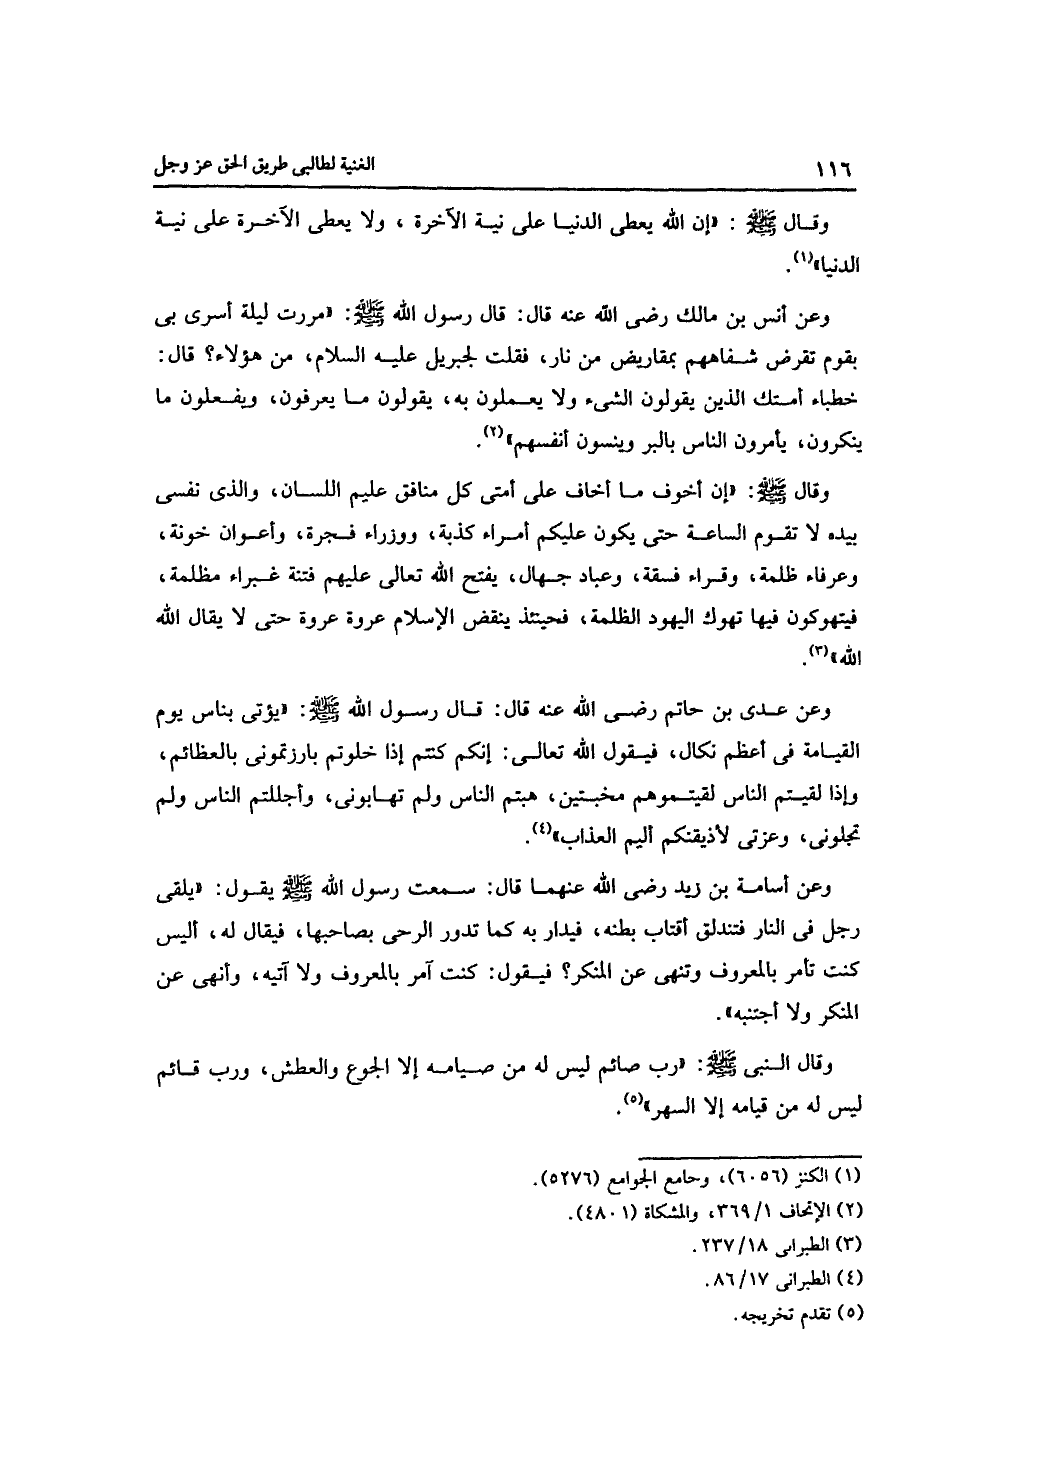 ١١٦ الغنية لطالبى طريق الحق عز وجل
وقـال ﷺ : «إن الله يعطى الدنيـا على نيـة الآخرة ، ولا يعطى الآخـرة على نيـة
الدنيا»(١).
وعن أنس بن مالك رضى الله عنه قال: قال رسول الله ﷺ: «مررت ليلة أسرى بى
بقوم تقرض شـفاههم بمقاريض من نار، فقلت لجبريل عليـه السلام، من هؤلاء؟ قال:
خطباء أمـتك الذين يقولون الشىء ولا يعـملون به، يقولون مـا يعرفون، ويفـعلون ما
ينكرون، يأمرون الناس بالبر وينسون أنفسهم»(٢).
وقال ﷺ: «إن أخوف مـا أخاف على أمتى كل منافق عليم اللسـان، والذى نفسى
بيده لا تقـوم الساعـة حتى يكون عليكم أمـراء كذبة، ووزراء فـجرة، وأعـوان خونة،
وعرفاء ظلمة، وقـراء فسقة، وعباد جـهال، يفتح الله تعالى عليهم فتنة غـبراء مظلمة،
فيتهوكون فيها تهوك اليهود الظلمة، فحينئذ ينقض الإسلام عروة عروة حتى لا يقال الله
الله»(٣).
وعن عـدى بن حاتم رضـى الله عنه قال: قـال رسـول الله ﷺ: «يؤتى بناس يوم
القيامة فى أعظم نكال، فيـقول الله تعالـى: إنكم كنتم إذا خلوتم بارزتمونى بالعظائم،
وإذا لقيـتم الناس لقيتـموهم مخبتين، هبتم الناس ولم تهـابونى، وأجللتم الناس ولم
تجلونى، وعزتى لأذيقنكم أليم العذاب»(٤).
وعن أسامـة بن زيد رضى الله عنهمـا قال: سـمعت رسول الله ﷺ يقـول: «يلقى
رجل فى النار فتندلق أقتاب بطنه، فيدار به كما تدور الرحى بصاحبها، فيقال له، أليس
كنت تأمر بالمعروف وتنهى عن المنكر؟ فيـقول: كنت آمر بالمعروف ولا آتيه، وأنهى عن
المنكر ولا أجتنبه».
وقال الـنبى ﷺ: «رب صائم ليس له من صـيامـه إلا الجوع والعطش، ورب قـائم
ليس له من قيامه إلا السهر»(٥).
(١) الكنز (٦٠٥٦)، وجامع الجوامع (٥٢٧٦).
(٢) الإتحاف ١/ ٣٦٩، والمشكاة (٤٨٠١).
(٣) الطبرانى ١٨/ ٢٣٧.
(٤) الطبرانى ١٧/ ٨٦.
(٥) تقدم تخريجه.